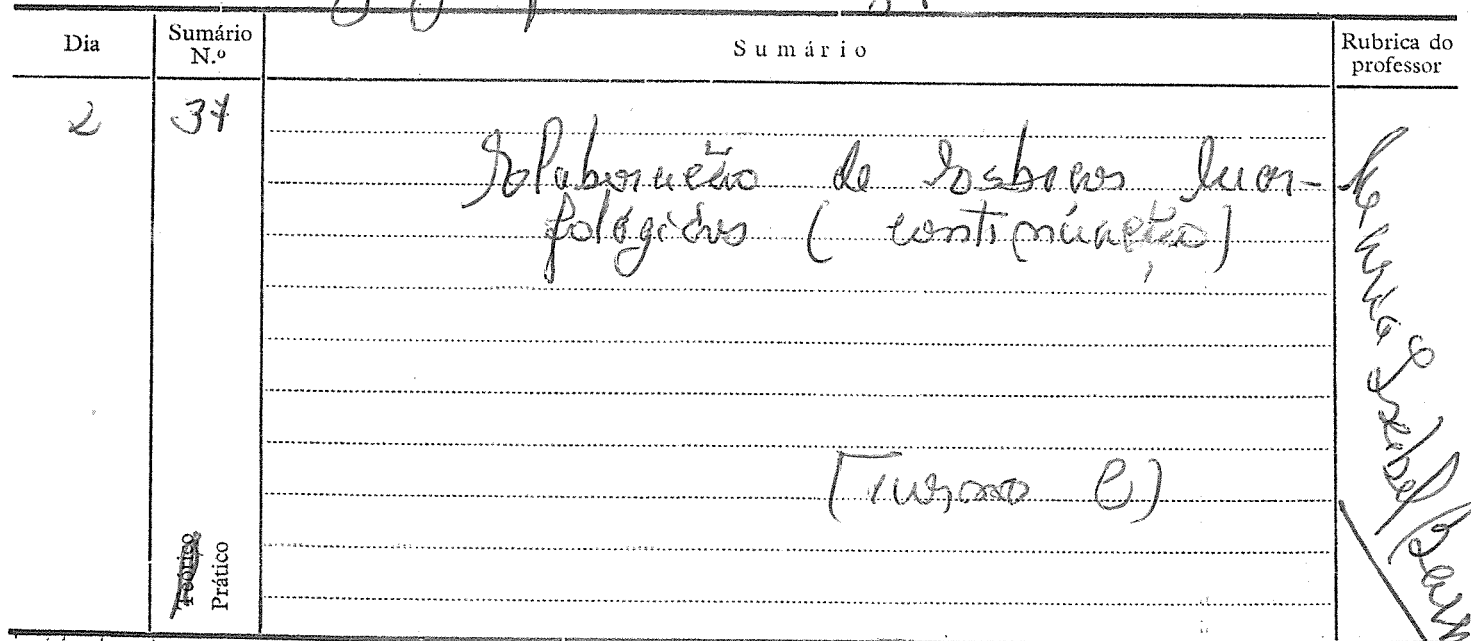 Dia
Sumário N.º
Sumário
Rubrica do professor
2
37
Elaboração de Esboços Mor-
fológicos (continuação)
(Turma C)
Teórico
Prático
Maria Isabel